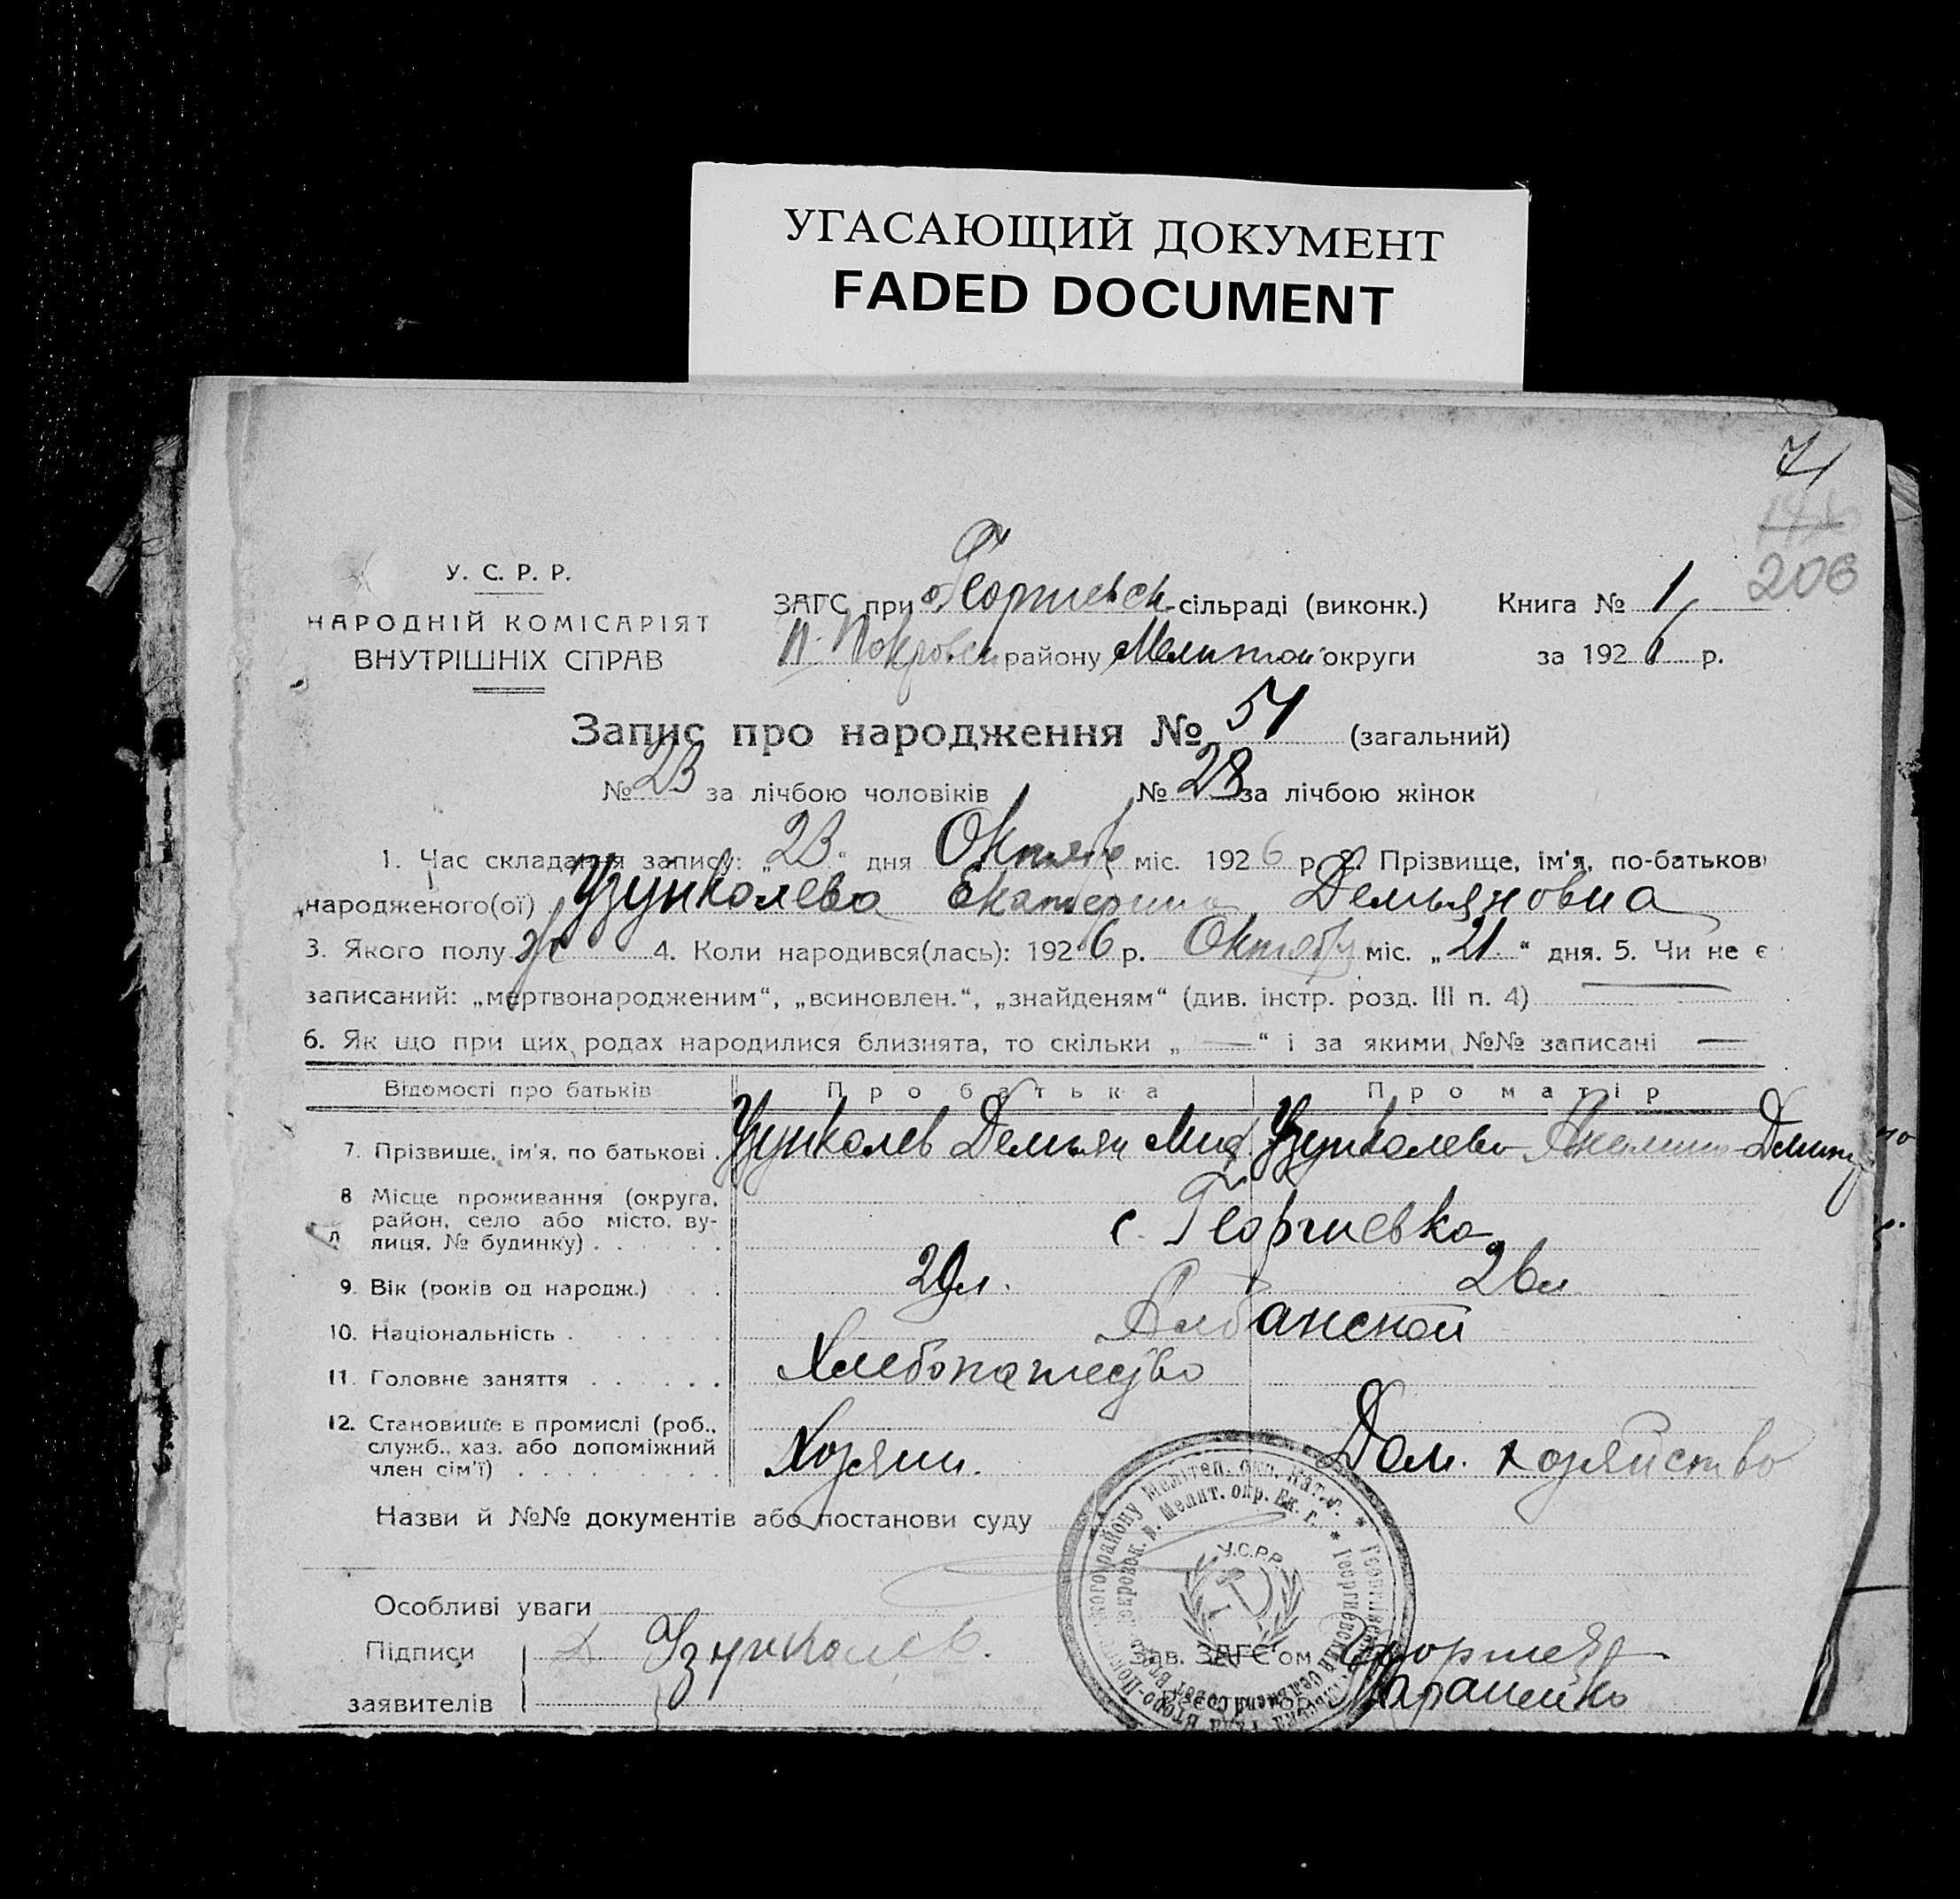 УГАСАЮЩИЙ ДОКУМЕНТ
FADED DOCUMENT
71
146
206
У. С. Р. Р.
НАРОДНІЙ КОМІСАРІЯТ
ВНУТРІШНІХ СПРАВ
ЗАГС при Георгиевск. сільраді (виконк.) Книга № 1
П. Покровск району Мелитоп округи за 192 р.
Запис про народження № 51 (загальний)
№ 23 за лічбою чоловіків № 28 за лічбою жінок
1. Час складання запису: „23“ дня Октября міс. 1926 р. 2. Прізвище, ім'я, по-батькові
народженого(ої) Узунколева Екатерина Демьяновна
3. Якого полу ж 4. Коли народився(лась): 1926 р. Октября міс. „21“ дня. 5. Чи не є
записаний: „мертвонародженим“, „всиновлен.“, „знайденям“ (див. інстр. розд. III п. 4) —
6. Як що при цих родах народилися близнята, то скільки „—“ і за якими №№ записані —
Відомості про батьків Про батька Про матір
7. Прізвище, ім'я, по батькові . Узунколев Демьян Миф. Узунколева
8 Місце проживання (округа,
район, село або місто, ву-
лиця, № будинку) . . . . . . с. Георгиевка
9. Вік (років од народж.) . . . 29 л. 26 л
10. Національність . . . . . Албанской
11. Головне заняття . . . . . Хлебопашество
12. Становище в промислі (роб.,
служб., хаз. або допоміжний
член сім'ї) . . . . . . . . Хозяин. Дом. хозяйство
Назви й №№ документів або постанови суду
Особливі уваги
Підписи Д Узунколев.
Зав. ЗАГС'ом
заявителів
У.С.Р.Р.